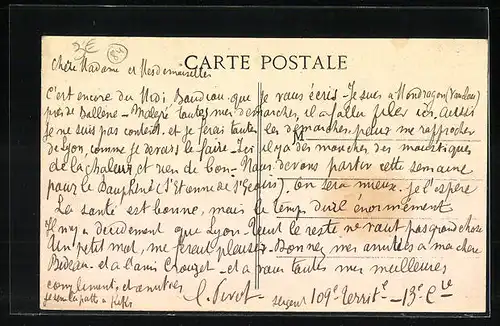 2€
84
CARTE POSTALE
Chère Madame et Mesdemoiselles
C'est encore du Midi que je vous écris - Je suis à Mondragon (Vaucluse)
près de Bollène - Malgré toutes mes démarches, il a fallu filer ici, aussi
je ne suis pas content, et je ferai toutes les démarches pour me rapprocher
de Lyon, comme je devais le faire - Ici il y a des mouches, des moustiques
de la chaleur, et rien de bon - Nous devons partir cette semaine
pour le Dauphiné (St Etienne de St Geoirs). On sera mieux, je l'espère
La santé est bonne, mais le temps dure énormément
Il n'y a décidément que Lyon le reste ne vaut pas grand chose
Un petit mot, me ferait plaisir - Donnez mes amitiés à ma chère
et à l'ami Crouzet - et à vous toutes mes meilleures
compliments, et amitiés
sergent 109e Territ - 13e Cie